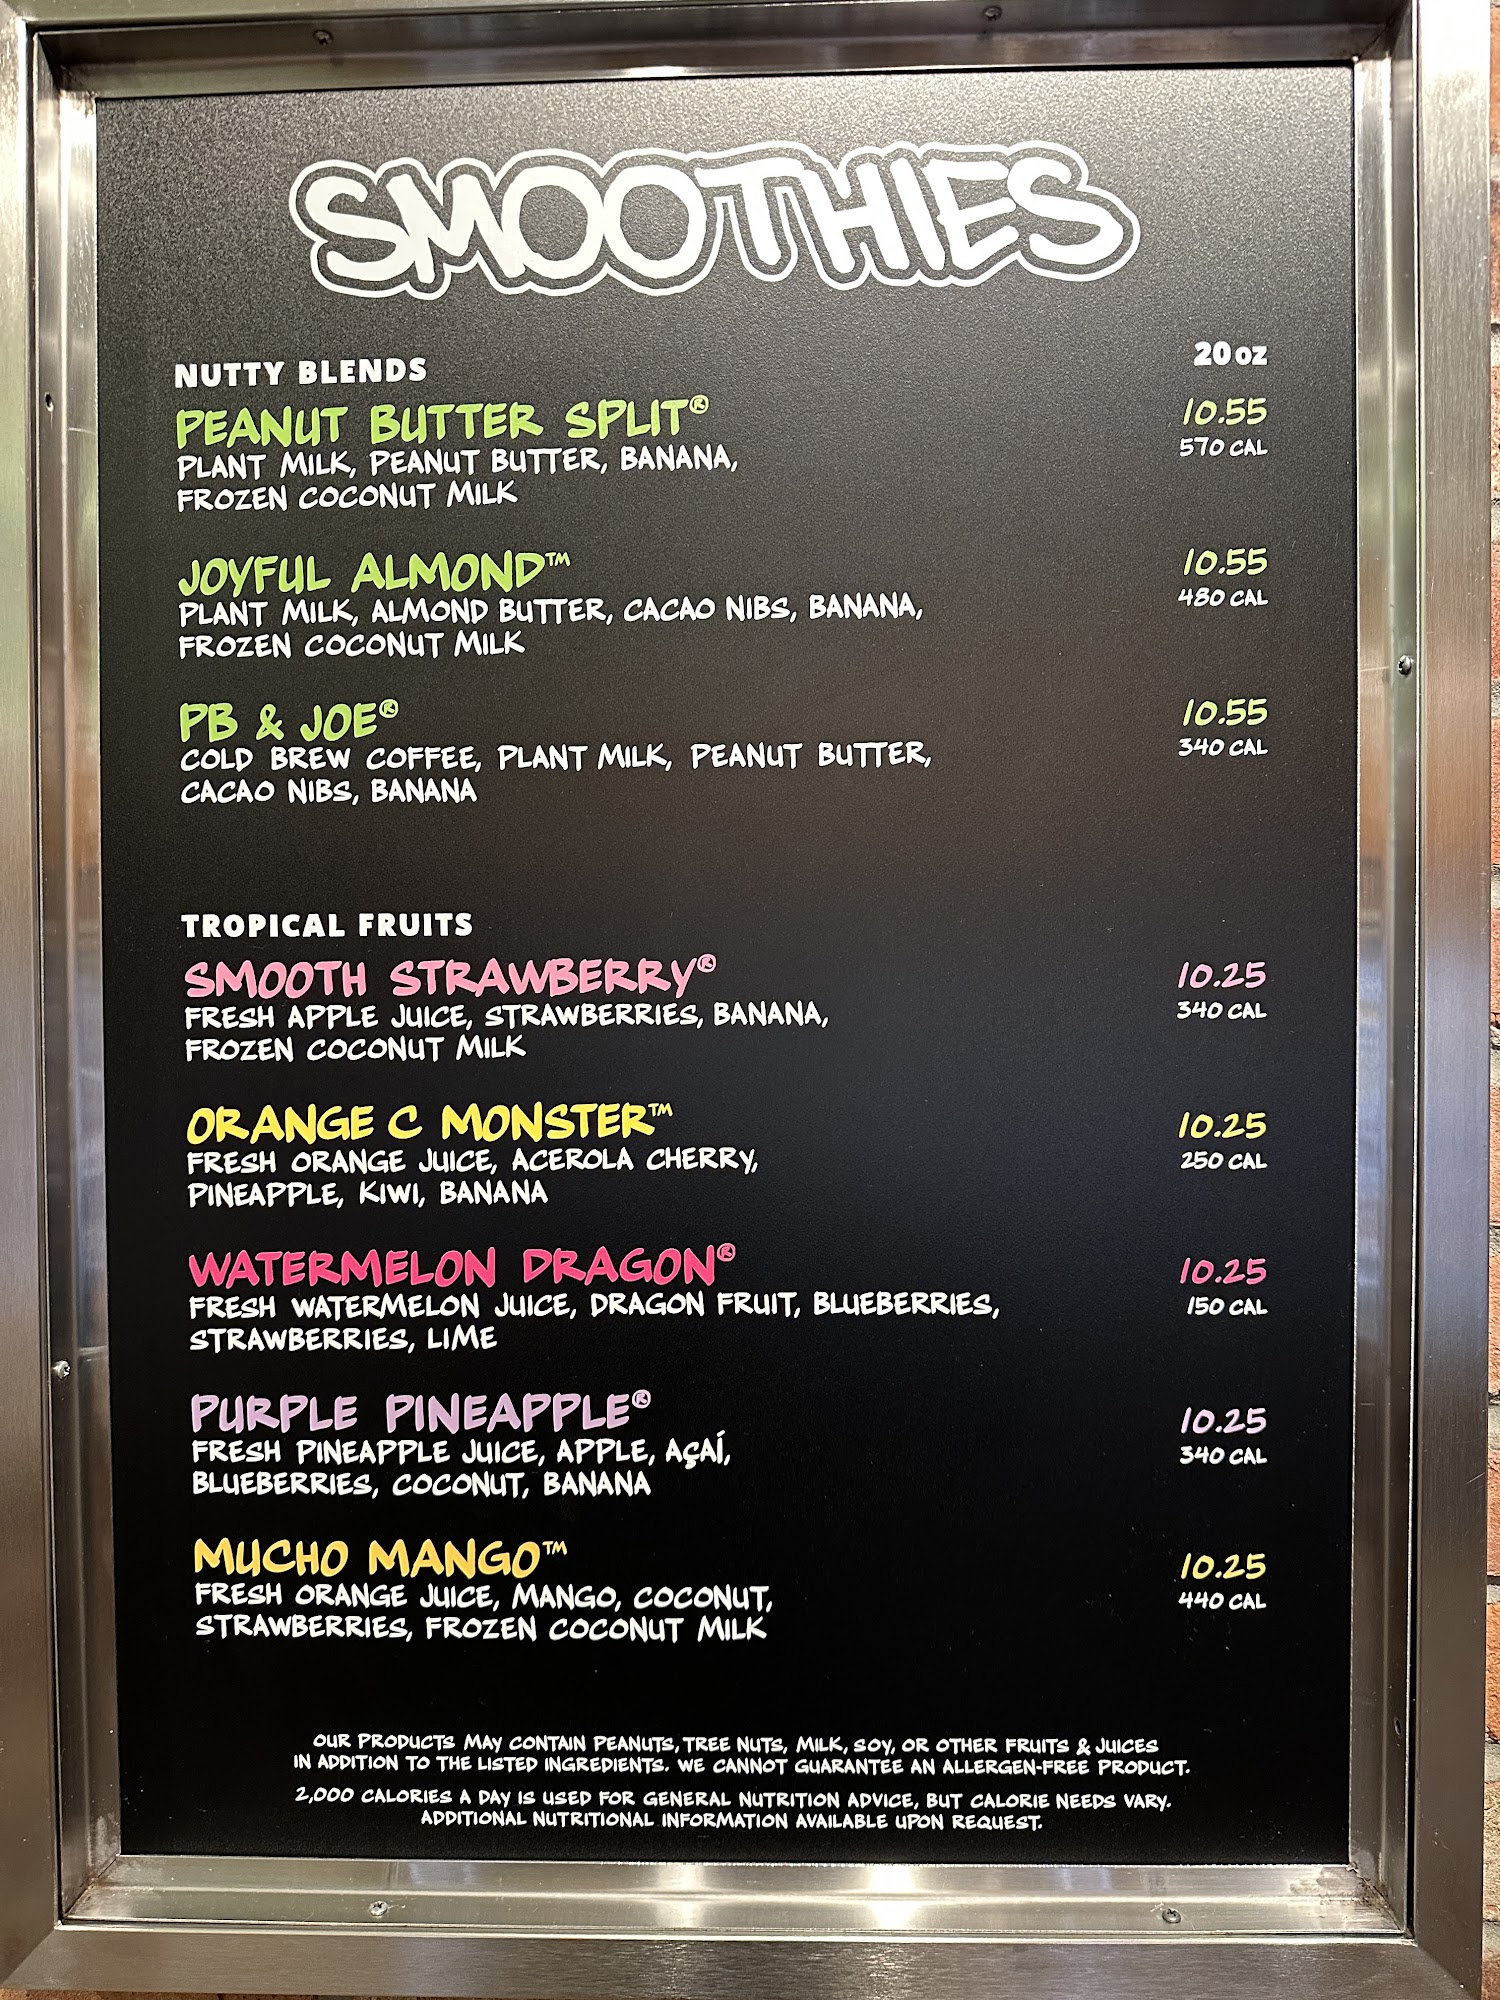 SMOOTHIES
NUTTY BLENDS 20 oz
PEANUT BUTTER SPLIT® 10.55
PLANT MILK, PEANUT BUTTER, BANANA, 570 CAL
FROZEN COCONUT MILK
JOYFUL ALMOND™ 10.55
PLANT MILK, ALMOND BUTTER, CACAO NIBS, BANANA, 480 CAL
FROZEN COCONUT MILK
PB & JOE® 10.55
COLD BREW COFFEE, PLANT MILK, PEANUT BUTTER, 340 CAL
CACAO NIBS, BANANA
TROPICAL FRUITS
SMOOTH STRAWBERRY® 10.25
FRESH APPLE JUICE, STRAWBERRIES, BANANA, 340 CAL
FROZEN COCONUT MILK
ORANGE C MONSTER™ 10.25
FRESH ORANGE JUICE, ACEROLA CHERRY, 250 CAL
PINEAPPLE, KIWI, BANANA
WATERMELON DRAGON® 10.25
FRESH WATERMELON JUICE, DRAGON FRUIT, BLUEBERRIES, 150 CAL
STRAWBERRIES, LIME
PURPLE PINEAPPLE® 10.25
FRESH PINEAPPLE JUICE, APPLE, AÇAÍ, 340 CAL
BLUEBERRIES, COCONUT, BANANA
MUCHO MANGO™ 10.25
FRESH ORANGE JUICE, MANGO, COCONUT, 440 CAL
STRAWBERRIES, FROZEN COCONUT MILK
OUR PRODUCTS MAY CONTAIN PEANUTS, TREE NUTS, MILK, SOY, OR OTHER FRUITS & JUICES
IN ADDITION TO THE LISTED INGREDIENTS. WE CANNOT GUARANTEE AN ALLERGEN-FREE PRODUCT.
2,000 CALORIES A DAY IS USED FOR GENERAL NUTRITION ADVICE, BUT CALORIE NEEDS VARY.
ADDITIONAL NUTRITIONAL INFORMATION AVAILABLE UPON REQUEST.